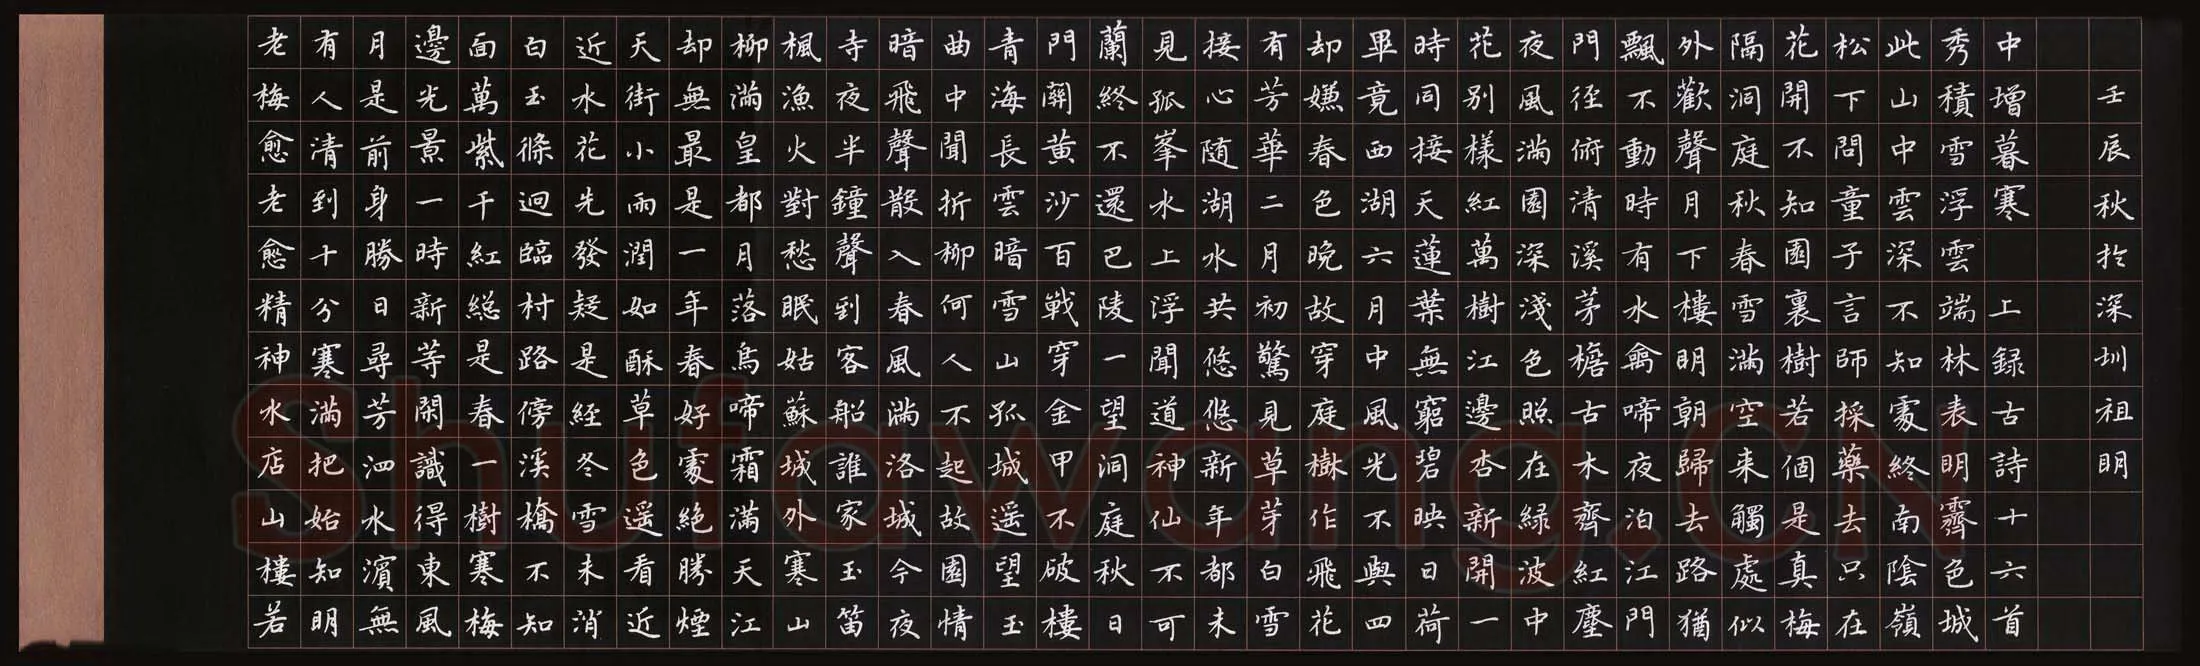 老梅愈老愈精神水店山樓若
有人清到十分寒滿把始知明
月是前身勝日尋芳泗水濱無
邊光景一時新等閑識得東風
面萬紫千紅総是春一樹寒梅
白玉條迥臨村路傍溪橋不知
近水花先發疑是經冬雪未消
天街小雨潤如酥草色遥看近
却無最是一年春好處絕勝煙
柳滿皇都月落烏啼霜滿天江
楓漁火對愁眠姑蘇城外寒山
寺夜半鐘聲到客船誰家玉笛
暗飛聲散入春風滿洛城今夜
曲中聞折柳何人不起故園情
青海長雲暗雪山孤城遥望玉
門關黃沙百戰穿金甲不破樓
蘭終不還巴陵一望洞庭秋日
見孤峯水上浮聞道神仙不可
接心随湖水共悠悠新年都未
有芳華二月初驚見草芽白雪
却嫌春色晚故穿庭樹作飛花
畢竟西湖六月中風光不與四
時同接天蓮葉無窮碧映日荷
花別樣紅萬樹江邊杏新開一
夜風滿園深淺色照在綠波中
門徑俯清溪茅檐古木齊紅塵
飄不動時有水禽啼夜泊江門
外歡聲月下樓明朝歸去路猶
隔洞庭秋春雪滿空来觸處似
花開不知園裏樹若個是真梅
松下問童子言師採藥去只在
此山中雲深不知處終南陰嶺
秀積雪浮雲端林表明霽色城
中增暮寒 上録古詩十六首
壬辰秋於深圳祖明
Shufawang.CN